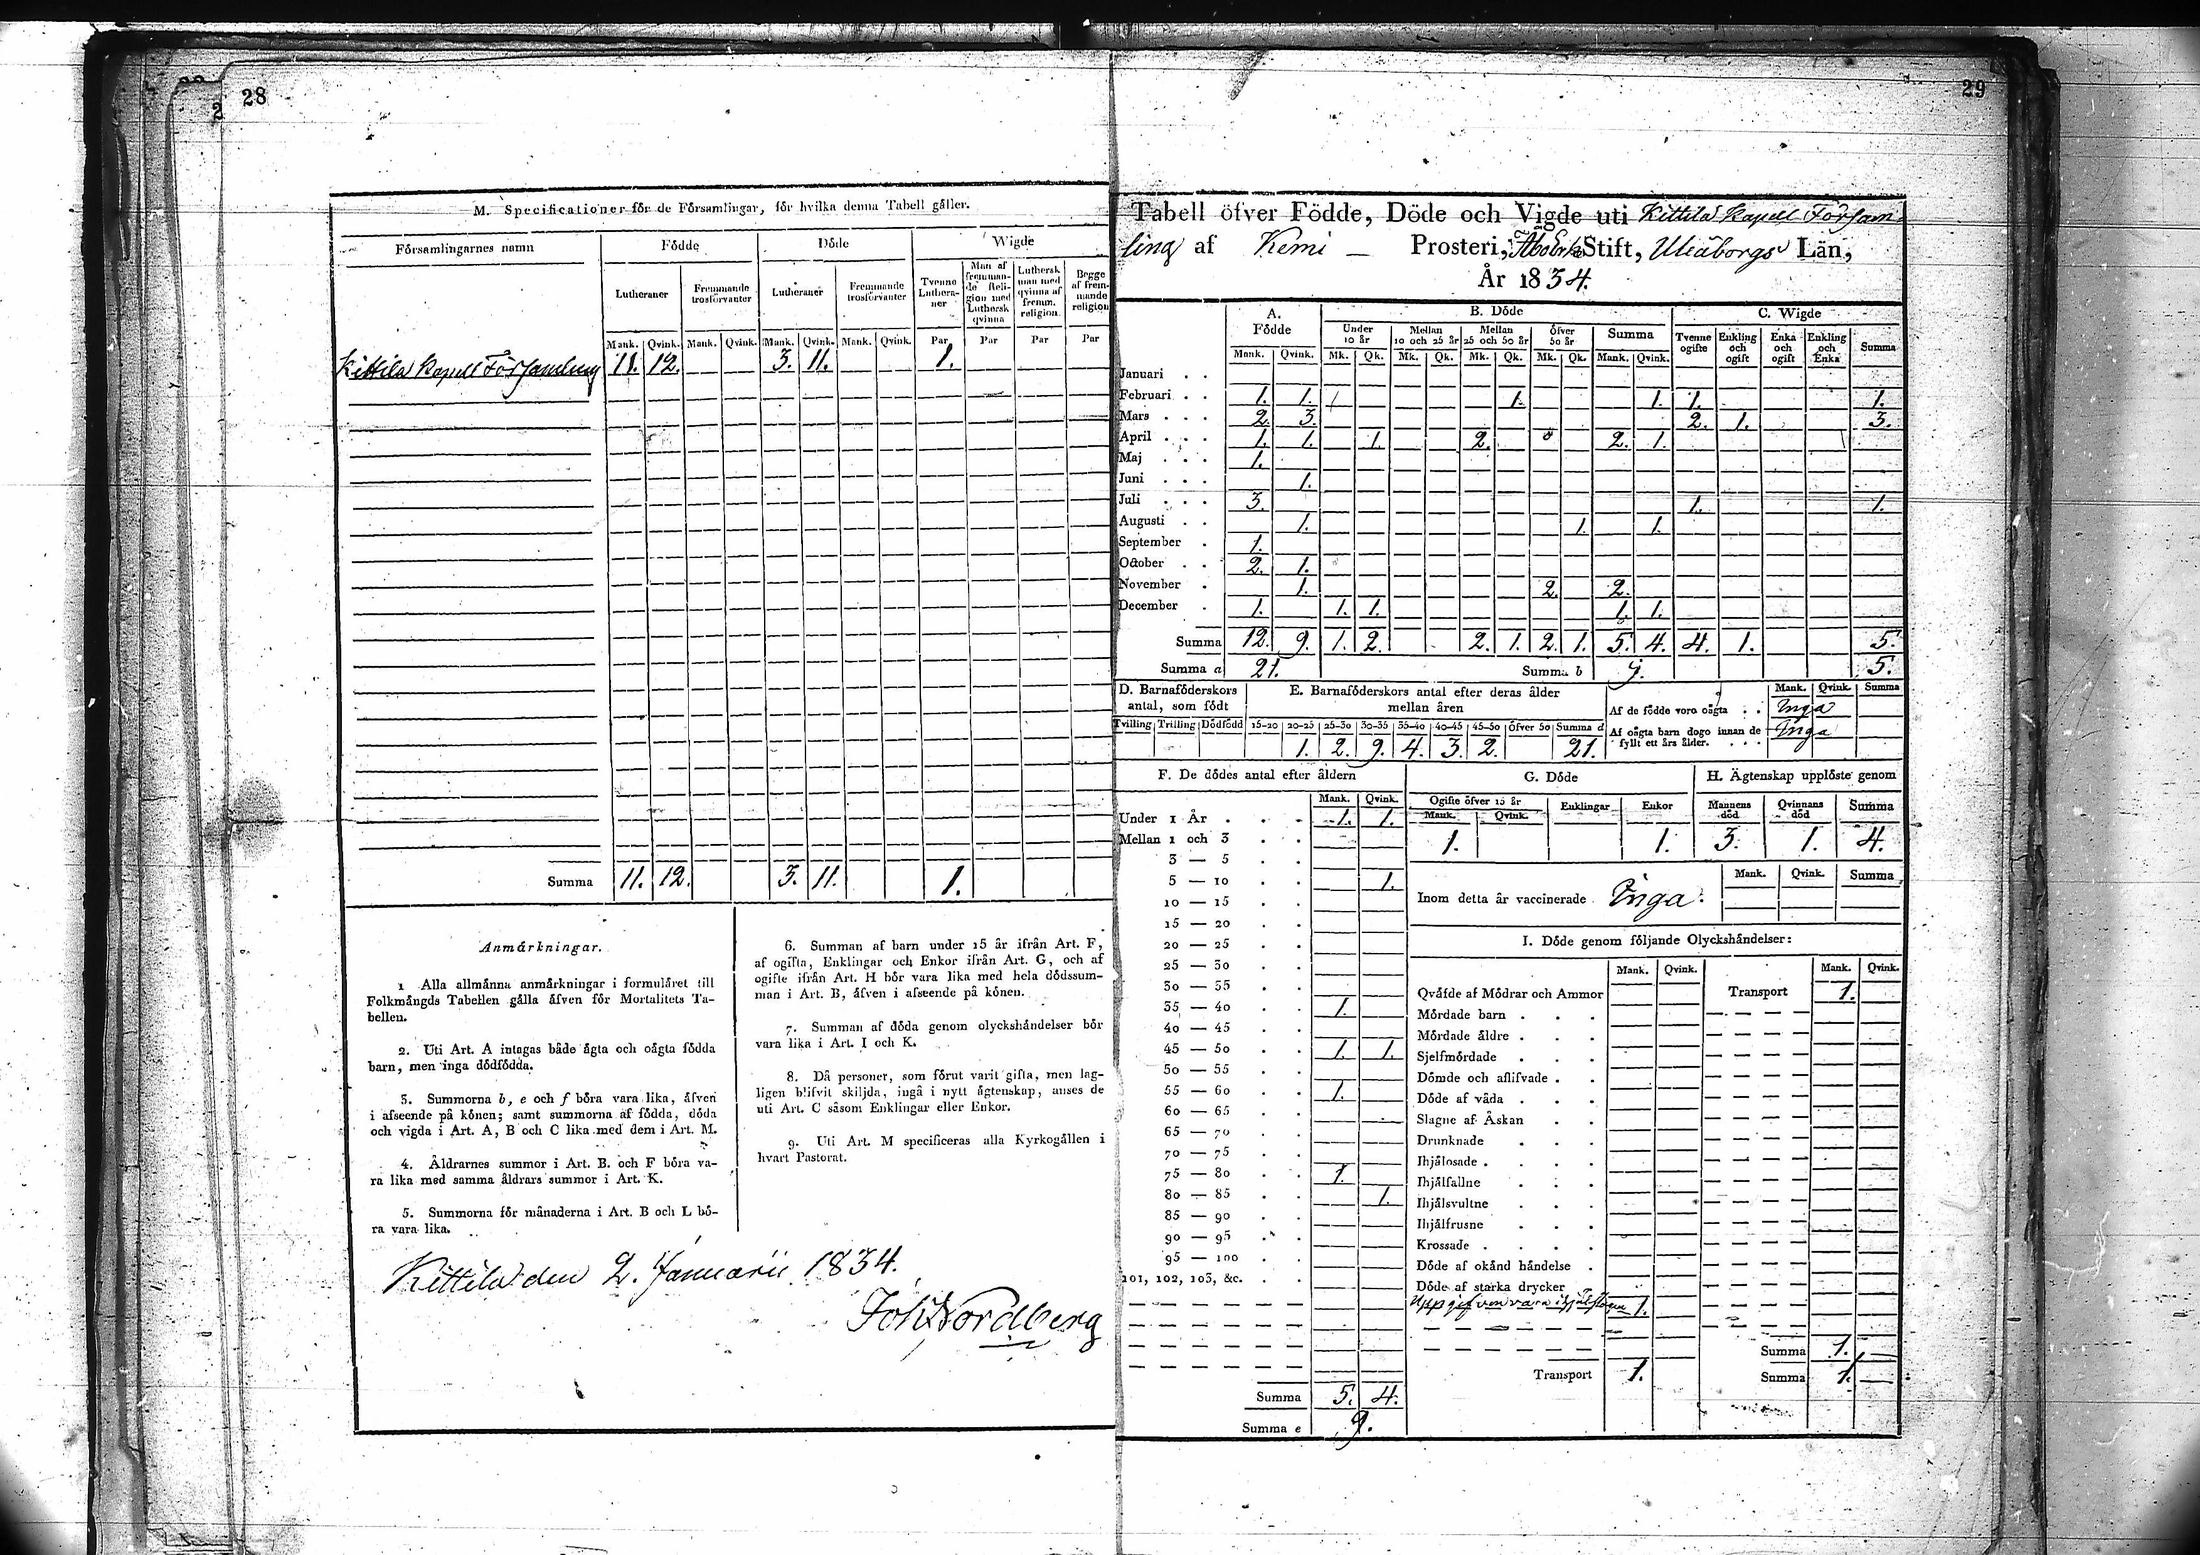 28
2
M. Specificationer för de Församlingar, för hvilka denna Tabell gäller.
Församlingarnes namn
Födde
Döde
Wigde
Lutheraner
Fremmande trosförvanter
Lutheraner
Fremmande trosförvanter
Tvenne Lutheraner
Man af fremmande Religion med Luthersk qvinna
Luthersk man med qvinna af fremm. religion.
Begge af fremmande religion
Mank. Qvink. Mank. Qvink. Mank. Qvink. Mank. Qvink. Par Par Par Par
Kittilä Kapell Församling 11. 12. 3. 11. 1.
Summa 11. 12. 3. 11. 1.
Anmärkningar.
1 Alla allmänna anmärkningar i formuläret till
Folkmängds Tabellen gälla äfven för Mortalitets Ta-
bellen.
2. Uti Art. A intagas både ägta och oägta födda
barn, men inga dödfödda.
3. Summorna b, e och f böra vara lika, äfven
i afseende på könen; samt summorna af födda, döda
och vigda i Art. A, B och C lika med dem i Art. M.
4. Åldrarnes summor i Art. B. och F böra va-
ra lika med samma åldrars summor i Art. K.
5. Summorna för månaderna i Art. B och L bö-
ra vara lika.
6. Summan af barn under 15 år ifrån Art. F,
af ogifta, Enklingar och Enkor ifrån Art. G, och af
ogifte ifrån Art. H bör vara lika med hela dödssum-
man i Art. B, äfven i afseende på könen.
7. Summan af döda genom olyckshändelser bör
vara lika i Art. I och K.
8. Då personer, som förut varit gifta, men lag-
ligen blifvit skiljda, ingå i nytt ägtenskap, anses de
uti Art. C såsom Enklingar eller Enkor.
9. Uti Art. M specificeras alla Kyrkogällen i
hvart Pastorat.
Kittilä den 2. Januarii 1834.
Joh Nordberg
29
Tabell öfver Födde, Döde och Vigde uti Kittilä Kapell Församling
af Kemi Prosteri, Stift, Uleåborgs Län,
År 1834.
A. Födde
B. Döde
C. Wigde
Under 10 år
Mellan 10 och 25 år
Mellan 25 och 50 år
Öfver 50 år
Summa
Tvenne ogifte
Enkling och ogift
Enka och ogift
Enkling och Enka
Summa
Mank. Qvink. Mk. Qk. Mk. Qk. Mk. Qk. Mk. Qk. Mank. Qvink.
Januari
Februari 1. 1. 1. 1. 1. 1.
Mars 2. 3. 2. 1. 3.
April 1. 1. 1. 2. 2. 1.
Maj 1.
Juni 1.
Juli 3. 1. 1.
Augusti 1. 1. 1.
September 1.
October 2. 1.
November 1. 2. 2.
December 1. 1. 1. 1. 1.
Summa 12. 9. 1. 2. 2. 1. 2. 1. 5. 4. 4. 1. 5.
Summa a 21. Summa b 9. 5.
D. Barnaföderskors antal, som födt
Tvilling Trilling Dödfödd
E. Barnaföderskors antal efter deras ålder mellan åren
15-20 20-25 25-30 30-35 35-40 40-45 45-50 Öfver 50 Summa d
1. 2. 9. 4. 3. 2. 21.
Mank. Qvink. Summa
Af de födde voro oägta . . Inga
Af oägta barn dogo innan de fyllt ett års ålder. . . . Inga
F. De dödes antal efter åldern
Mank. Qvink.
Under 1 År 1. 1.
Mellan 1 och 3
3 — 5
5 — 10 1.
10 — 15
15 — 20
20 — 25
25 — 30
30 — 35
35 — 40 1.
40 — 45
45 — 50 1. 1.
50 — 55
55 — 60 1.
60 — 65
65 — 70
70 — 75
75 — 80 1.
80 — 85 1.
85 — 90
90 — 95
95 — 100
101, 102, 103, &c.
Summa 5. 4.
Summa e 9.
G. Döde
Ogifte öfver 15 år
Mank. Qvink.
Enklingar
Enkor
1. 1.
H. Ägtenskap upplöste genom
Mannens död
Qvinnans död
Summa
3. 1. 4.
Mank. Qvink. Summa
Inom detta år vaccinerade Inga.
I. Döde genom följande Olyckshändelser:
Mank. Qvink. Mank. Qvink.
Qväfde af Mödrar och Ammor
Transport 1.
Mördade barn
Mördade äldre
Sjelfmördade
Dömde och aflifvade
Döde af våda
Slagne af Åskan
Drunknade
Ihjälosade
Ihjälfallne
Ihjälsvultne
Ihjälfrusne
Krossade
Döde af okänd händelse
Döde af starka drycker
Uppgifven vara ihjälslagen 1.
Summa 1.
Transport 1. Summa 1.